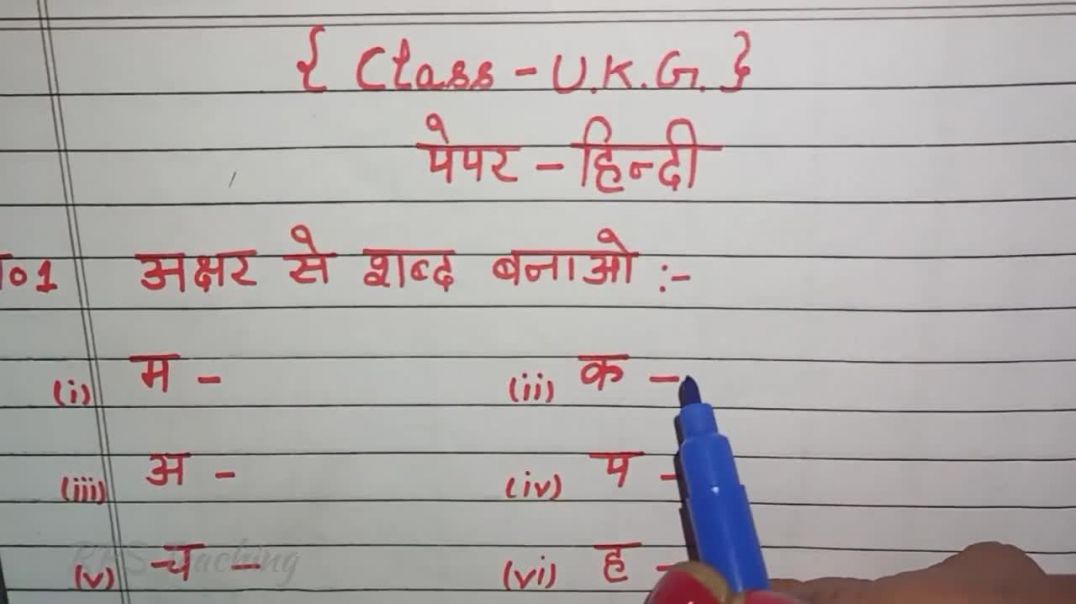 { Class - U.K.G. }
पेपर - हिन्दी
०1 अक्षर से शब्द बनाओ :-
(i) म - (ii) क -
(iii) अ - (iv) प -
(v) च - (vi) ह -
RKS Teaching